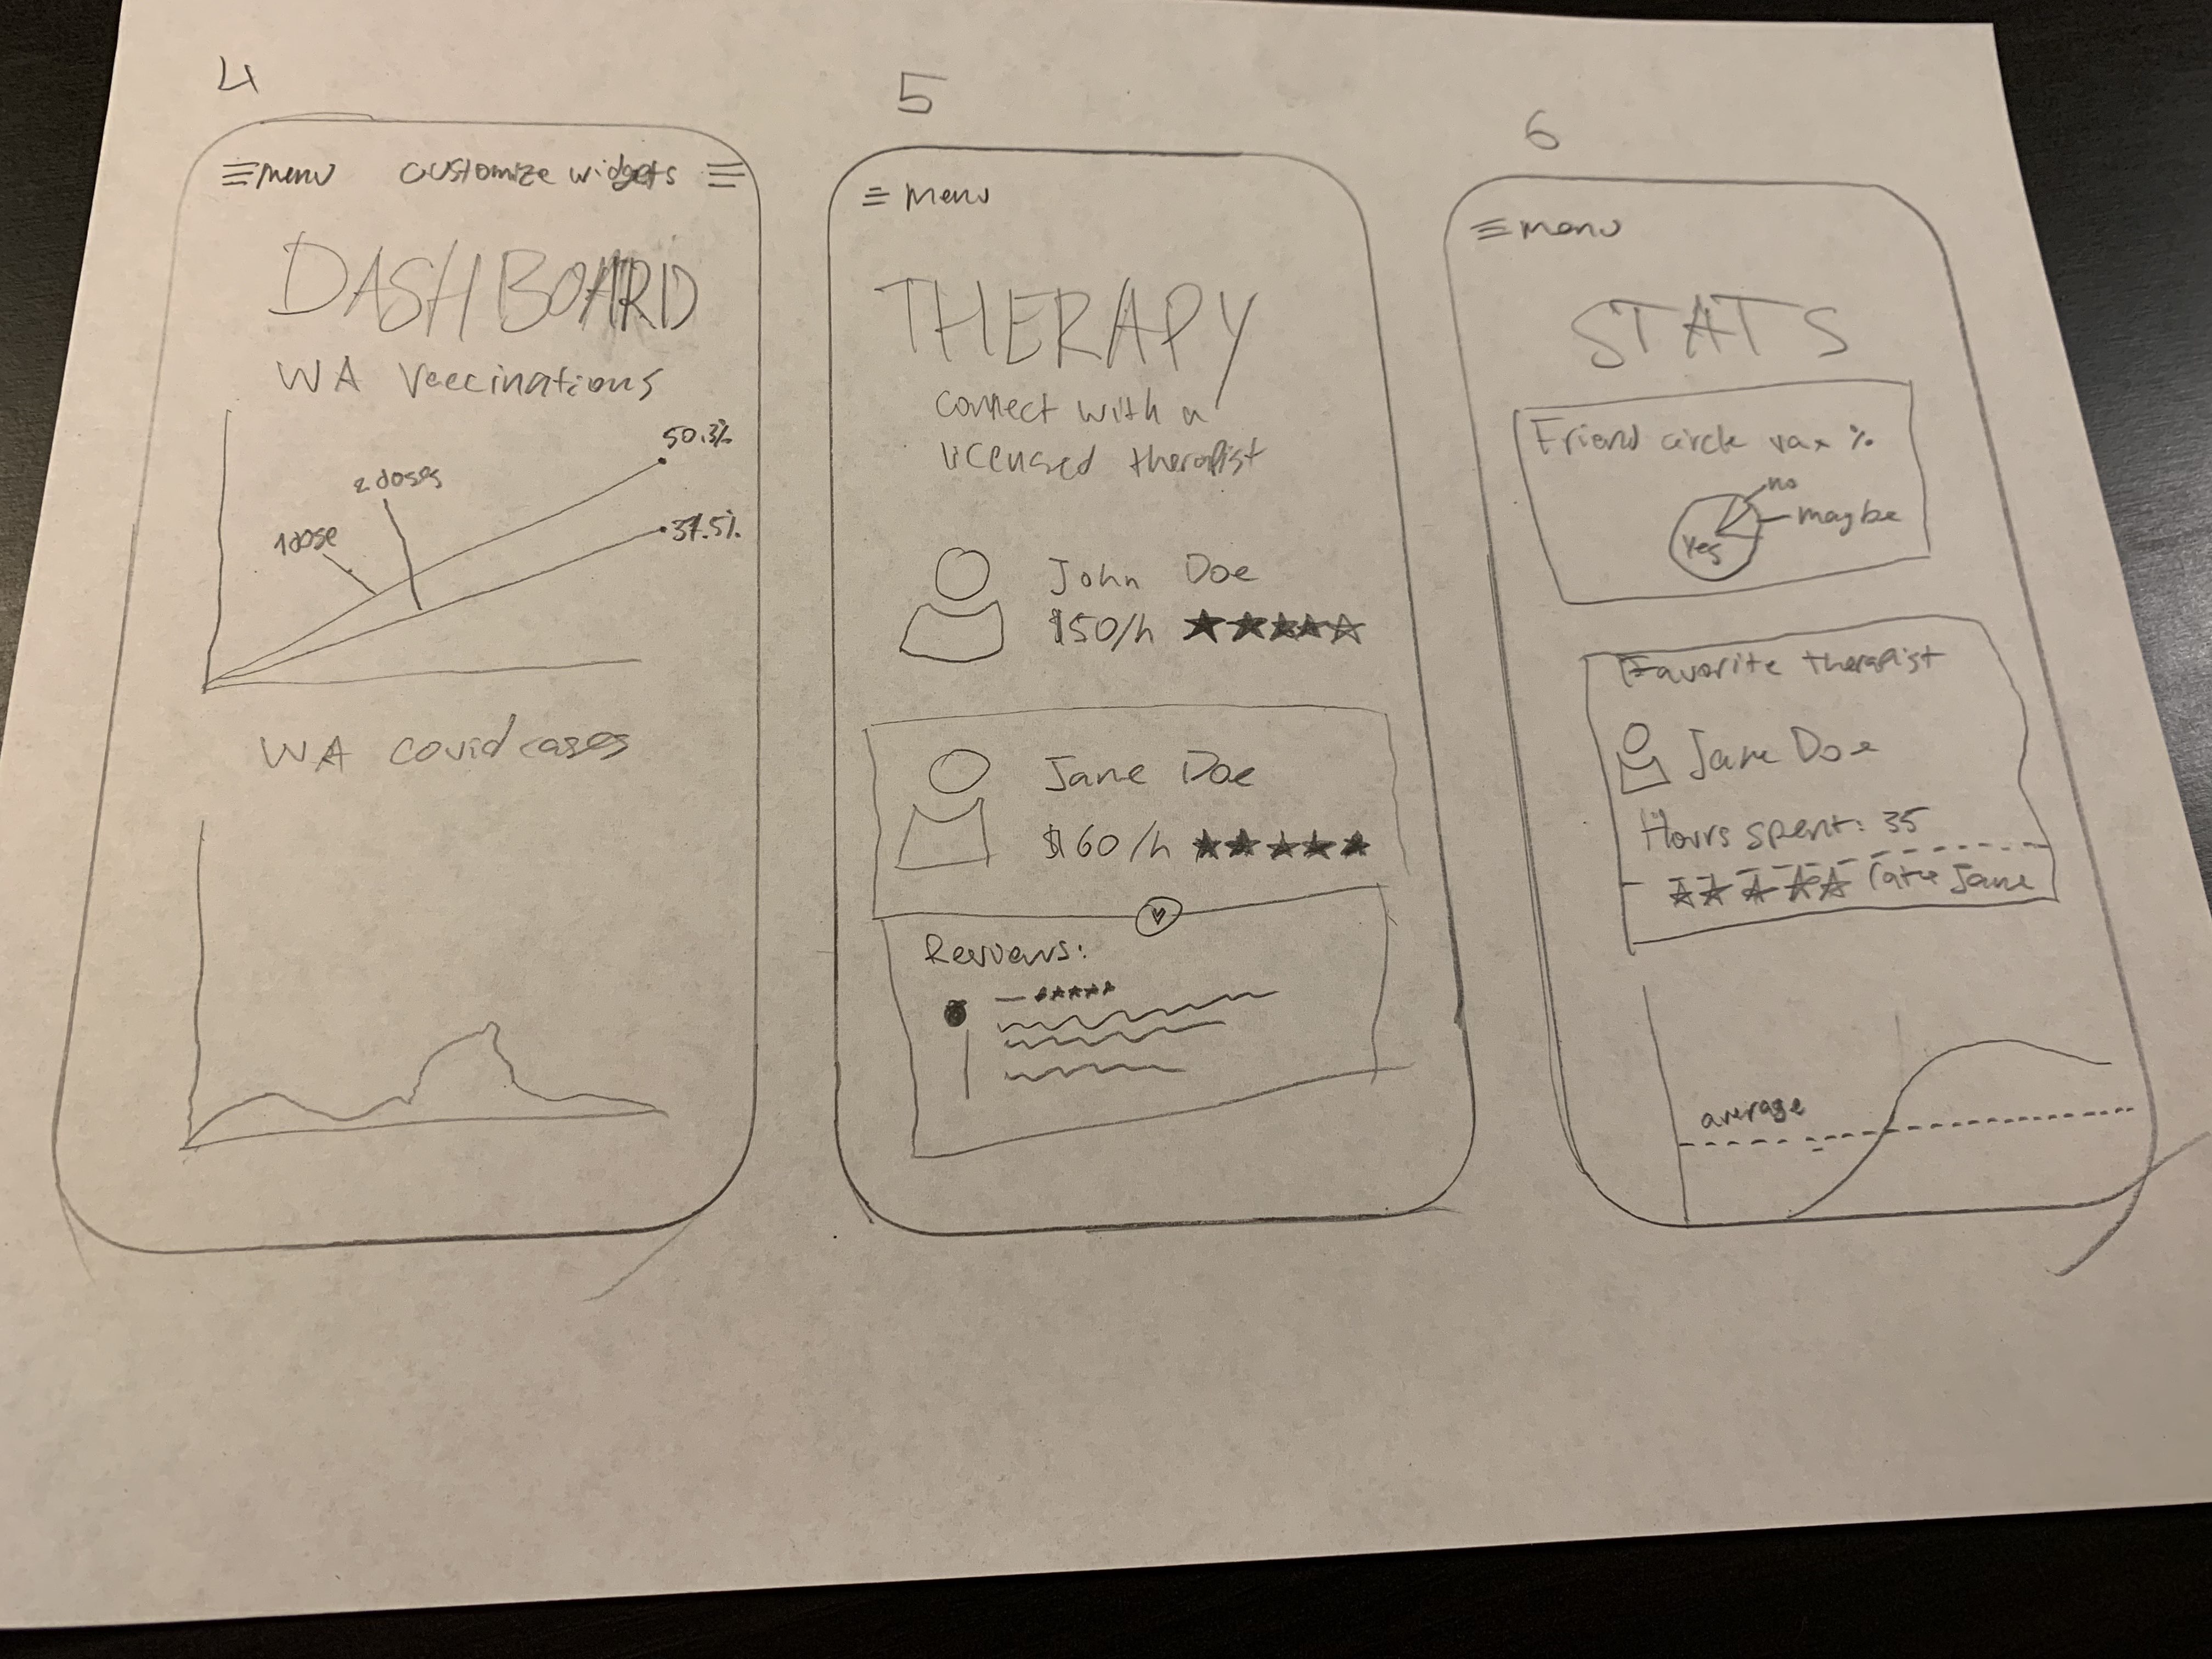 4
menu customize widgets
DASHBOARD
WA Veccinations
50.3%
2 doses
1 dose
37.5%
WA covid cases
5
Menu
THERAPY
connect with a
licensed therapist
John Doe
$50/h
Jane Doe
$60/h
Reviews:
6
menu
STATS
Friend circle vax %
no
maybe
yes
Favorite therapist
Jane Doe
Hours spent: 35
rate Jane
average